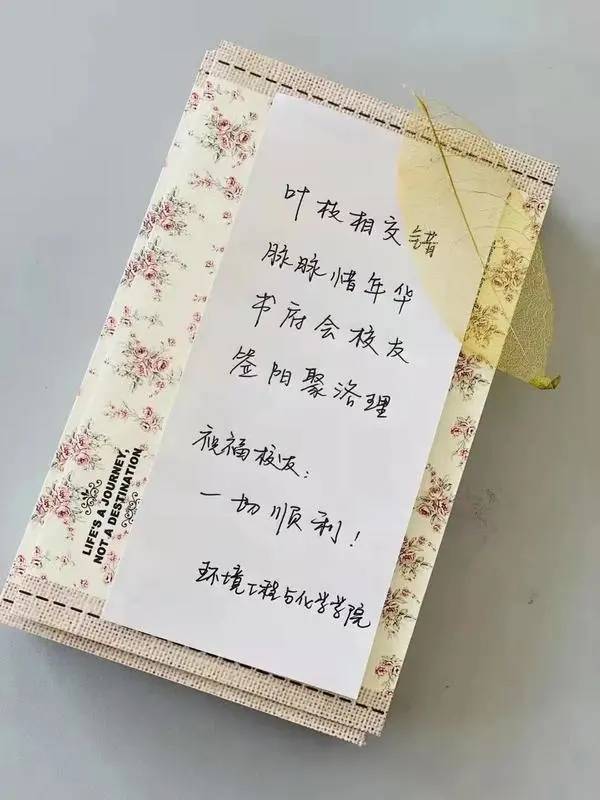 叶枝相交错
脉脉惜年华
书府会校友
签阳聚洛理
祝福校友：
一切顺利！
环境工程与化学学院
LIFE'S A JOURNEY,
NOT A DESTINATION.